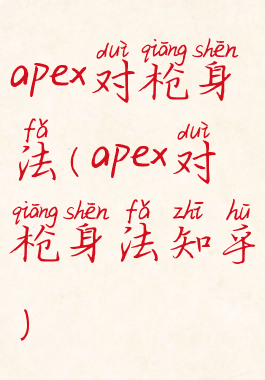 duì qiāng shēn
apex对枪身
fǎ duì
法(apex对
qiāng shēn fǎ zhī hū
枪身法知乎
)